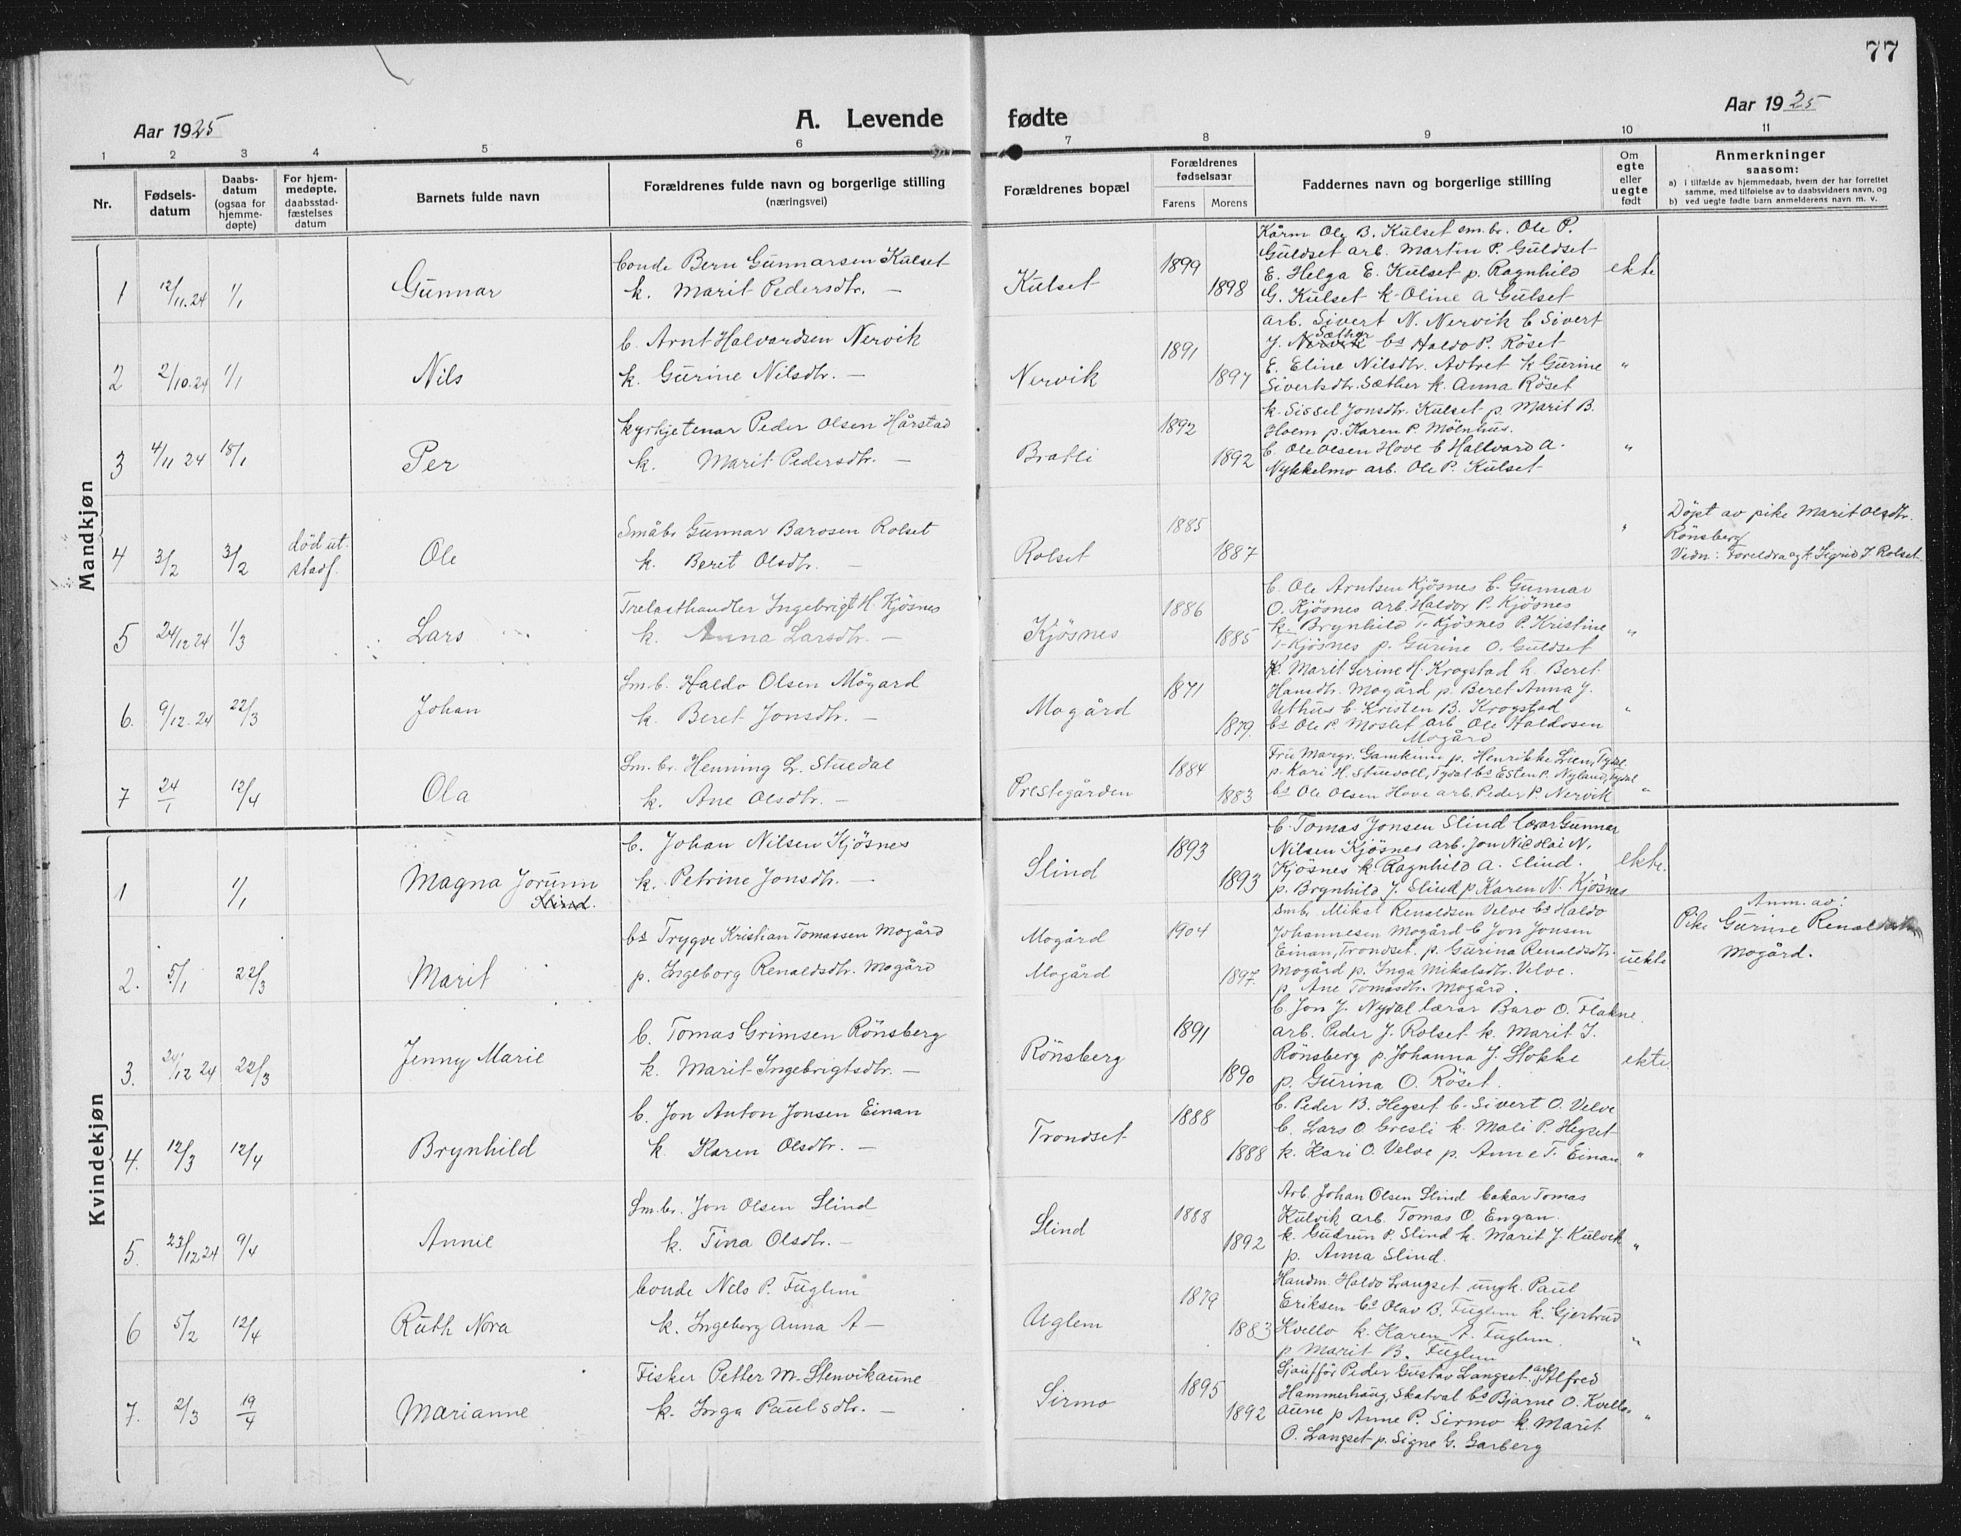 77
Aar 1925
A. Levende fødte
Aar 1925
1 2 3 4 5 6 7 8 9 10 11
Nr.
Fødsels-
datum
Daabs-
datum
(ogsaa for
hjemme-
døpte)
For hjem-
medøpte,
daabsstad-
fæstelses
datum
Barnets fulde navn
Forældrenes fulde navn og borgerlige stilling
(næringsvei)
Forældrenes bopæl
Forældrenes
fødselsaar
Farens Morens
Faddernes navn og borgerlige stilling
Om
egte
eller
uegte
født
Anmerkninger
saasom:
a) i tilfælde av hjemmedaab, hvem der har forrettet
samme, med tilføielse av to daabsvidners navn, og
b) ved uegte fødte barn anmelderens navn m. v.
Mandkjøn
1 12/11.24 1/1 Gunnar
bonde Bern Gunnarsen Kulset
k. Marit Pedersdtr. —
Kulset 1899 1898
Kårm Ole B. Kulset sm.br. Ole P.
Guldset arb. Martin P. Guldset
E. Helga E. Kulset p. Ragnhild
G. Kulset k. Oline A Gulset
ekte
2 2/10.24 1/1 Nils
b. Arnt Halvardsen Nervik
k. Gurine Nilsdtr. —
Nervik 1891 1897
arb. Sivert N. Nervik b Sivert
Sæther
J. Nervik bs Haldo P. Røset
E. Eline Nilsdtr. Autret k Gurine
Sivertsdtr. Sæther k. Anna Røset
"
3 4/11 24 18/1 Per
kyrkjetenar Peder Olsen Hårstad
k. Marit Pedersdtr. —
Bratli 1892 1892
k. Sissel Jonsdtr. Kulset p. Marit B.
Hoem p. Karen P. Mølnhus.
b. Ole Olsen Hove b Hallvard A.
Nykkelmo arb. Ole P. Kulset
"
4 3/2 3/2 død ut-
stadf. Ole
Småbr Gunnar Barosen Rolset
k. Beret Olsdtr. —
Rolset 1885 1887
"
Döpt av pike Marit Olsdtr.
Rönsberg
Vidn: Foreldra og k. Sigrid J. Rolset.
5 24/12 24 1/3 Lars
Trelasthandler Ingebrigt H. Kjösnes
k. Anna Larsdtr. —
Kjösnes 1886 1885
b. Ole Arntsen Kjösnes b. Gunnar
O. Kjösnes arb. Haldor P. Kjösnes
k. Brynhild T. Kjösnes P. Kristine
T. Kjösnes p. Gurine O. Guldset
"
6. 9/12.24 22/3 Johan
Sm.b. Haldo Olsen Mogard
k. Beret Jonsdtr. —
Mogård 1871 1879.
k. Marit Serine H. Krogstad k Beret
Hansdtr. Mogård p. Beret Anna J.
Uthus b. Kristen B. Krogstad
bs Ole P. Moslet arb. Ole Haldosen
Mogård
"
7 24/1 12/4 Ola
Sm.br. Henning L. Stuedal
k. Ane Olsdtr. —
Prestegården 1884 1883
Fru Margr. Gamkinn p. Henrikke Lien, Tydal
p. Kari H. Stuevoll, Tydal bs Esten P. Nyland, Tydal
bs Ole Olsen Hove arb. Peder P. Nervik
"
Kvindekjøn
1 1/1 Magna Jorunn
Slind.
b. Johan Nilsen Kjösnes
k. Petrine Jonsdtr. —
Slind 1893 1893
b. Tomas Jonsen Slind lærar Gunnar
Nilsen Kjösnes arb. Jon Nicolai N.
Kjösnes k. Ragnhild A. Slind.
p. Brynhild J. Slind p Karen N. Kjösnes
ekte.
2. 5/1 22/3 Marit
bs Trygve Kristian Tomassen Mogård
p. Ingeborg Renaldsdtr. Mogård
Mogård
Mogård 1904 1897.
Smbr. Mikal Renaldsen Velve bs Haldo
Johannesen Mogård b Jon Jonsen
Einan, Trondset. p. Gurina Renaldsdtr.
Mogård p. Inga Mikalsdtr. Velve.
p. Ane Tomasdtr. Mogård.
uekte
Anm. av:
Pike Gurine Renaldsdtr
Mogård.
3. 24/12 24 22/3 Jenny Marie
b. Tomas Grimsen Rönsberg
k. Marit Ingebrigtsdtr. —
Rönsberg 1891 1890
b. Jon J. Nydal lærar Baro O. Flakne.
arb. Peder J. Rolset k. Marit I.
Rönsberg p. Johanna J. Stokke
p. Gurina O. Röset.
ekte.
4. 12/3 12/4 Brynhild
b. Jon Anton Jonsen Einan
k. Karen Olsdtr. —
Trondset 1888 1888
b. Peder B. Hegset b. Sivert O. Velve
b. Lars O. Gresli k. Mali P. Hegset
k. Kari O. Velve p. Anne T. Einan.
"
5. 23/12 24 9/4 Annie
Sm.br. Jon Olsen Slind
k. Tina Olsdtr. —
Slind 1888 1892
Arb. Johan Olsen Slind bakar Tomas
Kulvik arb. Tomas O. Engan.
k. Gudrun P. Slind k. Marit J. Kulvik
p. Anna Slind.
"
6 5/2 12/4 Ruth Nora
bonde Nels P. Fuglem
k. Ingeborg Anna A —
Uglem 1879 1883
Handm. Haldo Langset ungk. Paul
Eriksen bs Olav B. Fuglem k. Gjertrud
Kvello k. Karen A. Fuglem.
p Marit B. Fuglem
"
7. 2/3 19/4 Marianne
Fisker Petter M. Stenvikaune
k. Inga Paulsdtr. —
Sirmo 1895 1892
Sjauffør Peder Gustav Langset. arb. Alfred
Hammerhaug, Skatval bs Bjarne O. Kvello-
aune p Anne P. Sirmo k. Marit
O. Langset p. Signe G. Garberg
"